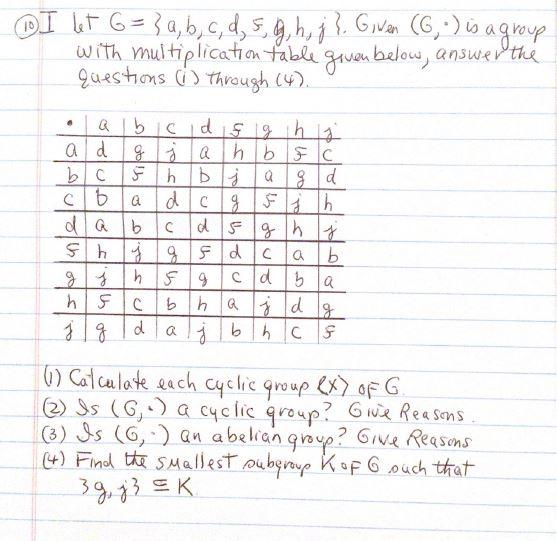 (10) I Let G = {a, b, c, d, f, g, h, j}. Given (G, ·) is a group
with multiplication table given below, answer the
questions (1) through (4).
· | a | b | c | d | f | g | h | j
a | d | g | j | a | h | b | f | c
b | c | f | h | b | j | a | g | d
c | b | a | d | c | g | f | j | h
d | a | b | c | d | f | g | h | j
f | h | j | g | f | d | c | a | b
g | j | h | f | g | c | d | b | a
h | f | c | b | h | a | j | d | g
j | g | d | a | j | b | h | c | f
(1) Calculate each cyclic group ⟨x⟩ of G.
(2) Is (G, ·) a cyclic group? Give Reasons.
(3) Is (G, ·) an abelian group? Give Reasons
(4) Find the smallest subgroup K of G such that
{g, j} ⊆ K.